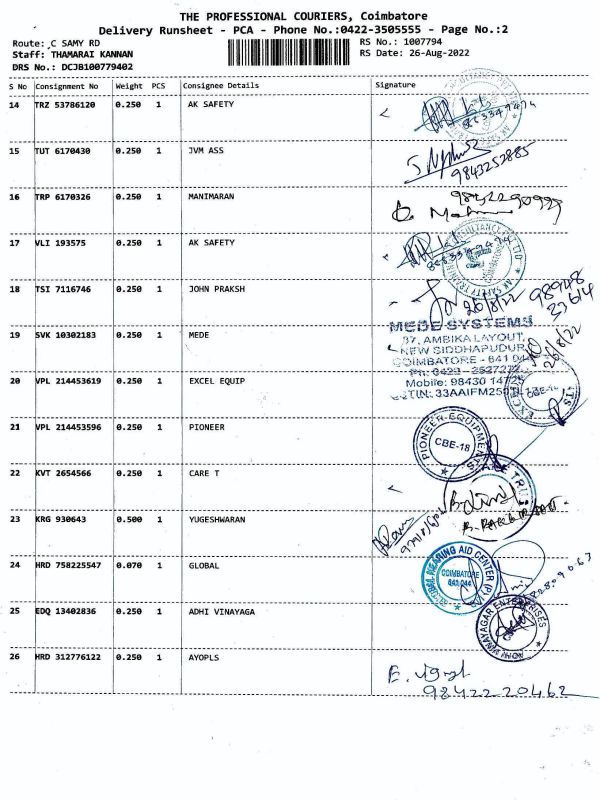 THE PROFESSIONAL COURIERS, Coimbatore
Delivery Runsheet - PCA - Phone No.:0422-3505555 - Page No.:2
Route: C SAMY RD
Staff: THAMARAI KANNAN
DRS No.: DCJB100779402
RS No.: 1007794
RS Date: 26-Aug-2022
S No Consignment No Weight PCS Consignee Details Signature
14 TRZ 53786120 0.250 1 AK SAFETY
15 TUT 6170430 0.250 1 JVM ASS
9843252885
16 TRP 6170326 0.250 1 MANIMARAN
17 VLI 193575 0.250 1 AK SAFETY
18 TSI 7116746 0.250 1 JOHN PRAKSH
26/8/22
98948
19 SVK 10302183 0.250 1 MEDE
MEDE SYSTEMS
37, AMBIKA LAYOUT,
NEW SIDDHAPUDUR,
COIMBATORE - 641 044
Ph: 0422 - 2527272
Mobile: 98430 14725
26/8/22
20 VPL 214453619 0.250 1 EXCEL EQUIP
21 VPL 214453596 0.250 1 PIONEER
PIONEER EQUIPMENTS
CBE-18
22 KVT 2654566 0.250 1 CARE T
23 KRG 930643 0.500 1 YUGESHWARAN
24 HRD 758225547 0.070 1 GLOBAL
GLOBAL HEARING AID CENTER (P)
COIMBATORE
641 044
25 EDQ 13402836 0.250 1 ADHI VINAYAGA
ADHI VINAYAGAR ENTERPRISES
26 HRD 312776122 0.250 1 AYOPLS
98422 20462